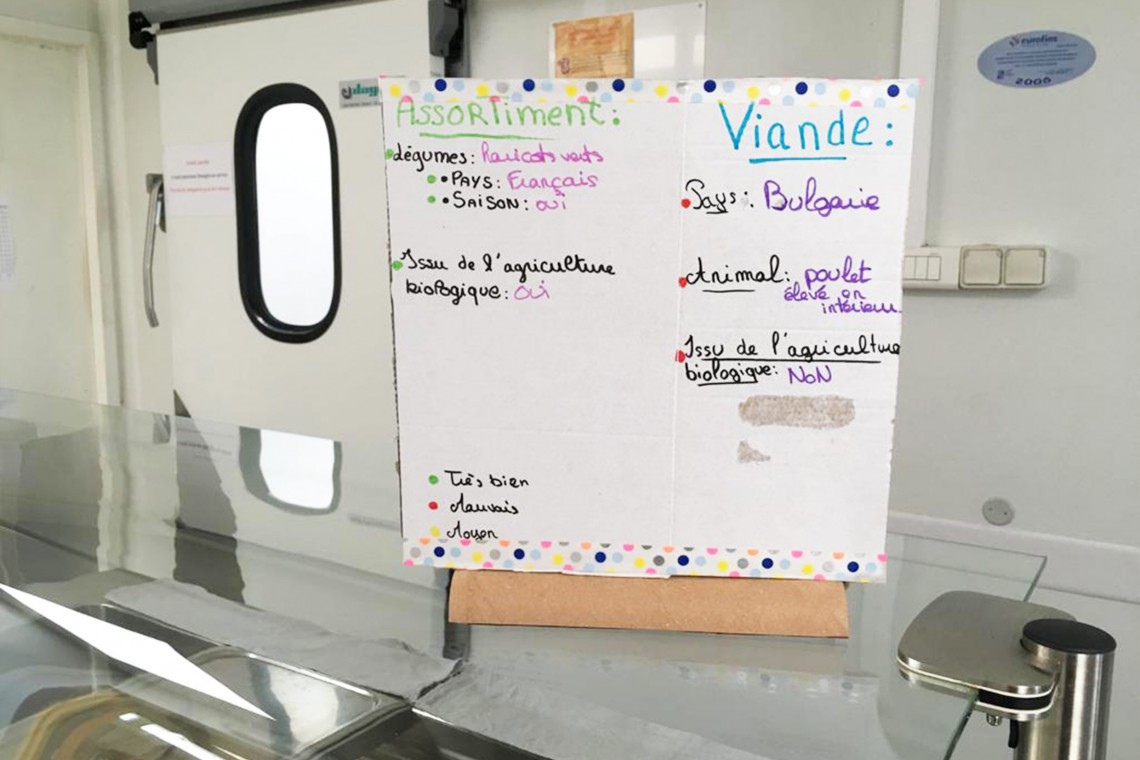 Assortiment:
dégumes: Haricots verts
• Pays: Français
• Saison: oui
Issu de l'agriculture
biologique: oui
Très bien
Mauvais
Moyen
Viande:
Pays: Bulgarie
Animal: poulet
élevé en
intérieur
Issu de l'agriculture
biologique: NoN
eurofins
2006